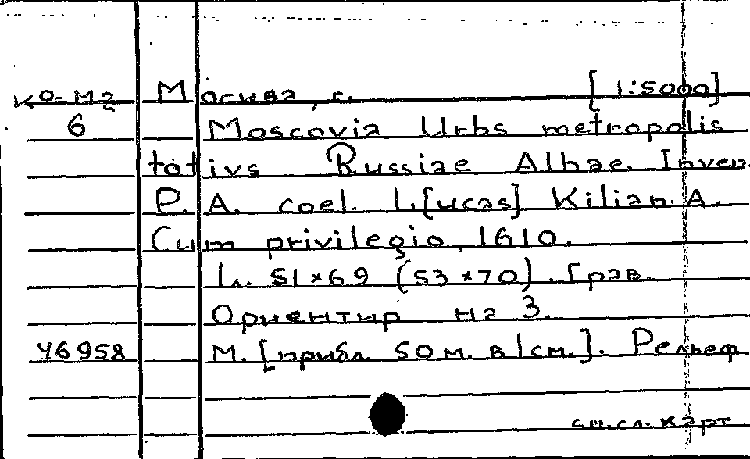 КО-М2 Москва, г. [1:5000]
6 Moscovia Urbs metropolis
totivs Russiae Albae. Inven.
P. A. coel. L.[ucas] Kilian. A.
Cum privilegio, 1610.
1 л. 51×69 (53×70). Грав.
Ориентир на З.
46958 М. [прибл. 50 м. в 1 см.]. Рельеф
см. сл. карт